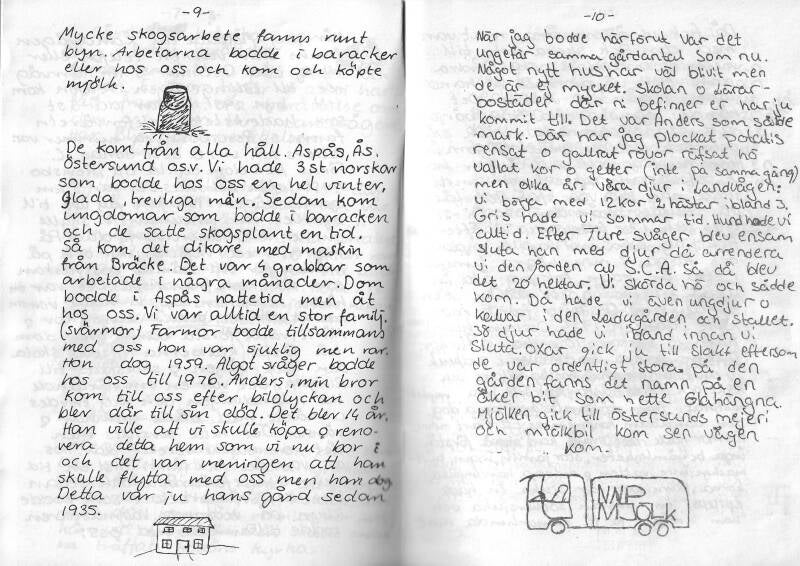 -9-
Mycke skogsarbete fanns runt
byn. Arbetarna bodde i baracker
eller hos oss och kom och köpte
mjölk.
De kom från alla håll. Aspås, Ås,
Östersund o.s.v. Vi hade 3 st norskar
som bodde hos oss en hel vinter,
glada, trevliga män. Sedan kom
ungdomar som bodde i baracken
och de satte skogsplant en tid.
Så kom det dikare med maskin
från Bräcke. Det var 4 grabbar som
arbetade i några månader. Dom
bodde i Aspås nattetid men åt
hos oss. Vi var alltid en stor familj.
(svärmor) Farmor bodde tillsammans
med oss, hon var sjuklig men rar.
Hon dog 1959. Algot svåger bodde
hos oss till 1976. Anders, min bror
kom till oss efter bilolyckan och
blev där till sin död. Det blev 14 år.
Han ville att vi skulle köpa o reno-
vera detta hem som vi nu bor i
och det var meningen att han
skulle flytta med oss men han dog
Detta var ju hans gård sedan
1935.
-10-
När jag bodde härförut var det
ungefär samma gårdantal som nu.
Något nytt hus har väl blivit men
de är ej mycket. Skolan o Lärar-
bostäder där ni befinner er har ju
kommit till. Det var Anders som sådde
mark. Där har jag plockat potatis
rensat o gallrat rovor räfsat hö
vallat kor o getter (inte på samma gång)
men olika år. Våra djur i Landvågen:
Vi börja med 12 kor 2 hästar ibland 3.
Gris hade vi sommar tid. Hund hade vi
alltid. Efter Ture svåger blev ensam
sluta han med djur då arrendera
vi den jorden av S.C.A. så då blev
det 20 hektar. Vi skörda hö och sådde
korn. Då hade vi även ungdjur o
kalvar i den Ladugården och stallet.
38 djur hade vi ibland innan vi
sluta. Oxar gick ju till slakt eftersom
de var ordentligt stora på den
gården fanns det namn på en
åker bit som hette Glahängna.
Mjölken gick till Östersunds mejeri
och mjölkbil kom sen vägen
kom.
NNP
MJÖLK